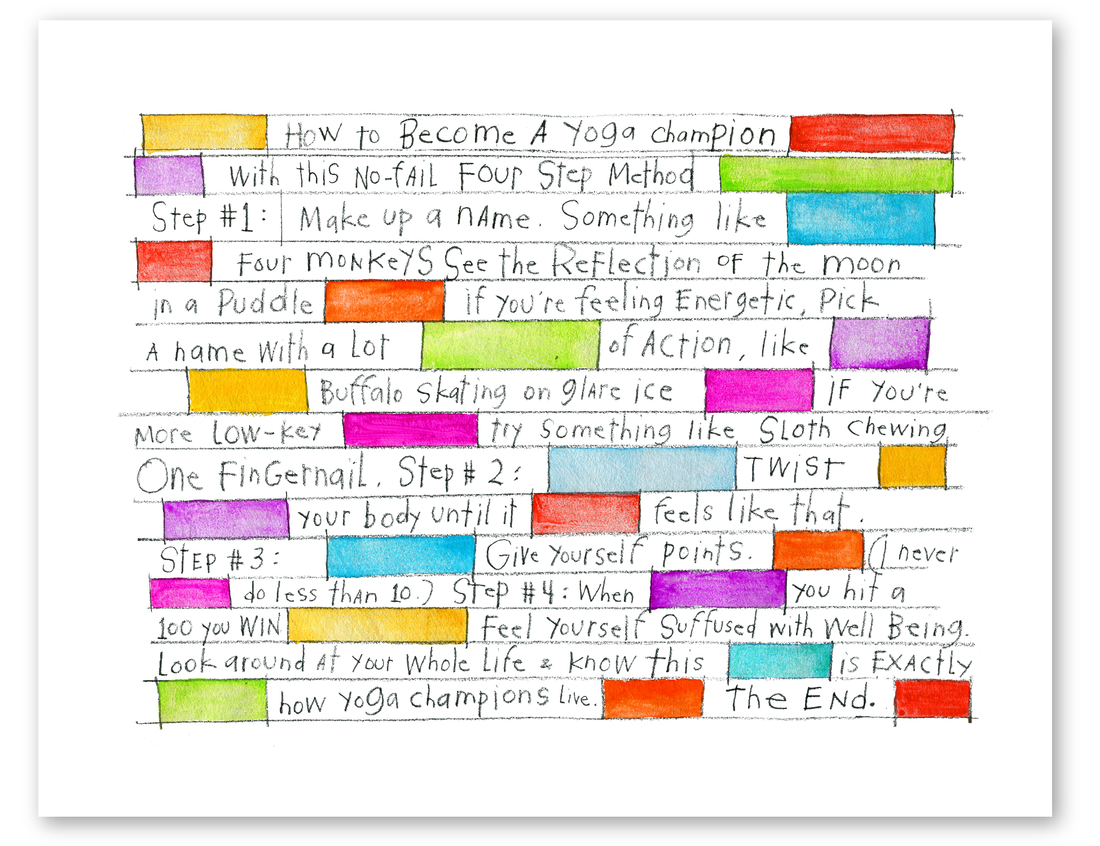 How to Become A Yoga champion
With this No-fAiL FOUr Step Method
Step #1: Make up a nAme. Something like
Four monKeYS See the ReFlection oF the moon
in a Puddle if you're feeling Energetic, Pick
A name With a Lot of ACTion, like
Buffalo skating on glAre ice IF You're
More LOW-Key try Something like Sloth Chewing
One FinGernaiL. Step # 2: TWiST
your body until it feels like that.
STEP # 3: Give Yourself points. (I never
do less thAn 10.) STep #4: When you hit a
100 you WIN Feel Yourself Suffused with Well Being.
Look around At Your Whole Life & know this is EXActly
how YoGa champions Live. The END.